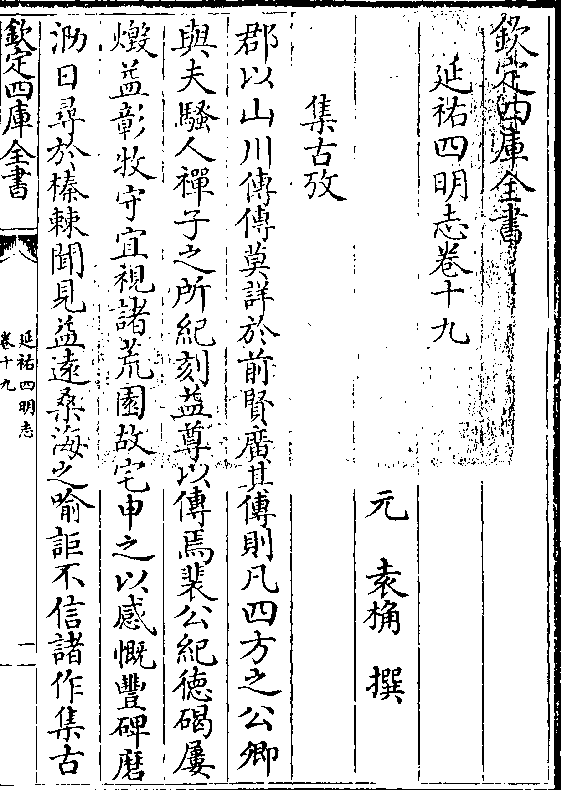 欽定四庫全書
延祐四明志卷十九
元 袁桷 撰
集古攷
郡以山川傳傳莫詳於前賢廣其傳則凡四方之公卿
與夫騷人禪子之所紀刻益尊以傳焉裴公紀德碣屢
燬益彰牧守宜視諸荒園故宅申之以感慨豐碑磨
泐日尋於榛棘聞見益逺桑海之喻詎不信諸作集古
欽定四庫全書
延祐四明志
卷十九
一